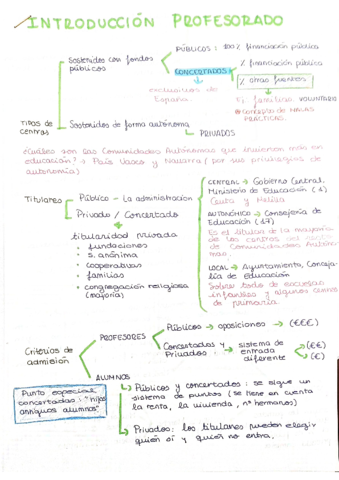 INTRODUCCIÓN PROFESORADO
PÚBLICOS: 100% financiación pública
Sostenidos con fondos
públicos
CONCERTADOS
% financiación pública
% otras fuentes
exclusivos de
España.
Ej. familias. VOLUNTARIO
*concepto de MALAS
PRÁCTICAS.
Tipos de
centros
Sostenidos de forma autónoma
PRIVADOS
¿Cuáles son las Comunidades Autónomas que invierten más en
educación? → País Vasco y Navarra (por sus privilegios de
autonomía)
Titulares
Público - La administración
Privado / Concertado
titularidad privada
• fundaciones
• s. anónima
• cooperativas
• familias
• congregación religiosa
(mayoría)
CENTRAL → Gobierno Central.
Ministerio de Educación (1)
Ceuta y Melilla
AUTONÓMICO → Consejería de
Educación (17)
Es el titular de la mayoría
de los centros del resto
de Comunidades Autóno-
mas.
LOCAL → Ayuntamiento, Conceja-
lía de Educación
Sobre todo de escuelas
infantiles y algunos
de primaria.
Criterios de
admisión
PROFESORES
Públicos → oposiciones → (€€€)
Concertados y
Privados:
sistema de
entrada
diferente
(€€)
(€)
ALUMNOS
Punto especial
concertadas: "hijos
antiguos alumnos"
Públicos y concertados: se sigue un
sistema de puntos (se tiene en cuenta
la renta, la vivienda, nº hermanos)
Privados: los titulares pueden elegir
quién sí y quién no entra.